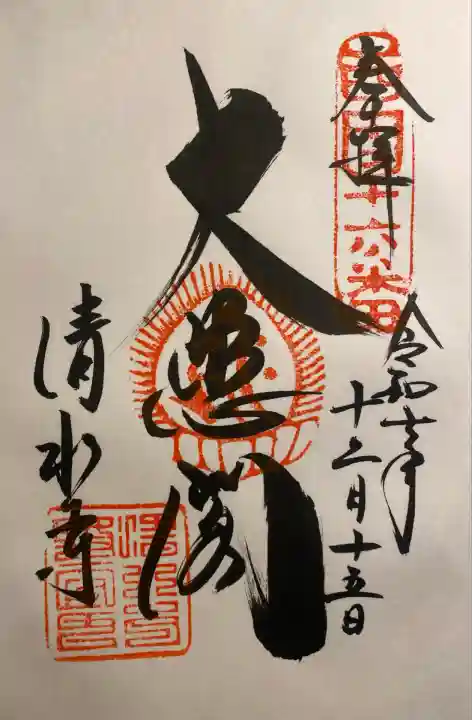 奉拝
西国十六番
令和 年
十二月十五日
大悲閣
清水寺